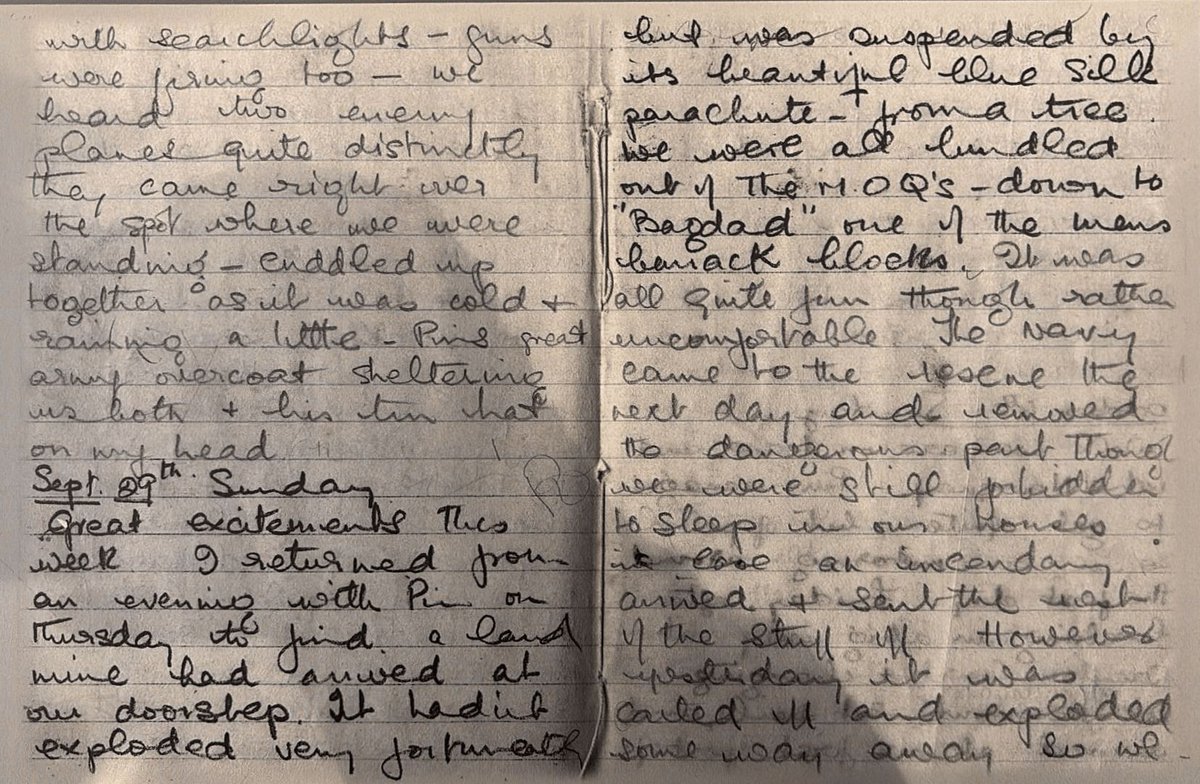 with searchlights – guns
were firing too – we
heard two enemy
planes quite distinctly
they came right over
the spot where we were
standing – cuddled up
together as it was cold +
raining a little – Pins great
army overcoat sheltering
us both + his tin hat
on my head
Sept. 29th Sunday
Great excitements this
week I returned from
an evening with Pin on
Thursday to find a land
mine had arrived at
our doorstep. It hadnt
exploded very fortunately
but was suspended by
its beautiful blue silk
parachute – from a tree.
We were all bundled
out of the M.O.Q's – down to
"Bagdad" one of the mens
barrack blocks. It was
all quite fun though rather
uncomfortable The Navy
came to the rescue the
next day and removed
the dangerous part Though
we were still forbidden
to sleep in our houses
in case an incendary
arrived + sent the rest
of the stuff off However
yesterday it was
carted off and exploded
some way away so we